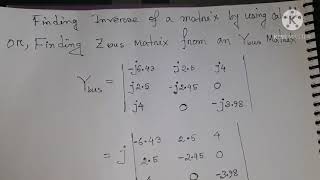 Finding Inverse of a matrix by using
OR, Finding Zbus Matrix from an Ybus Matrix
Ybus = | -j6.43 j2.5 j4 |
| j2.5 -j2.95 0 |
| j4 0 -j3.98 |
= j | -6.43 2.5 4 |
| 2.5 -2.95 0 |
| 0 -3.98